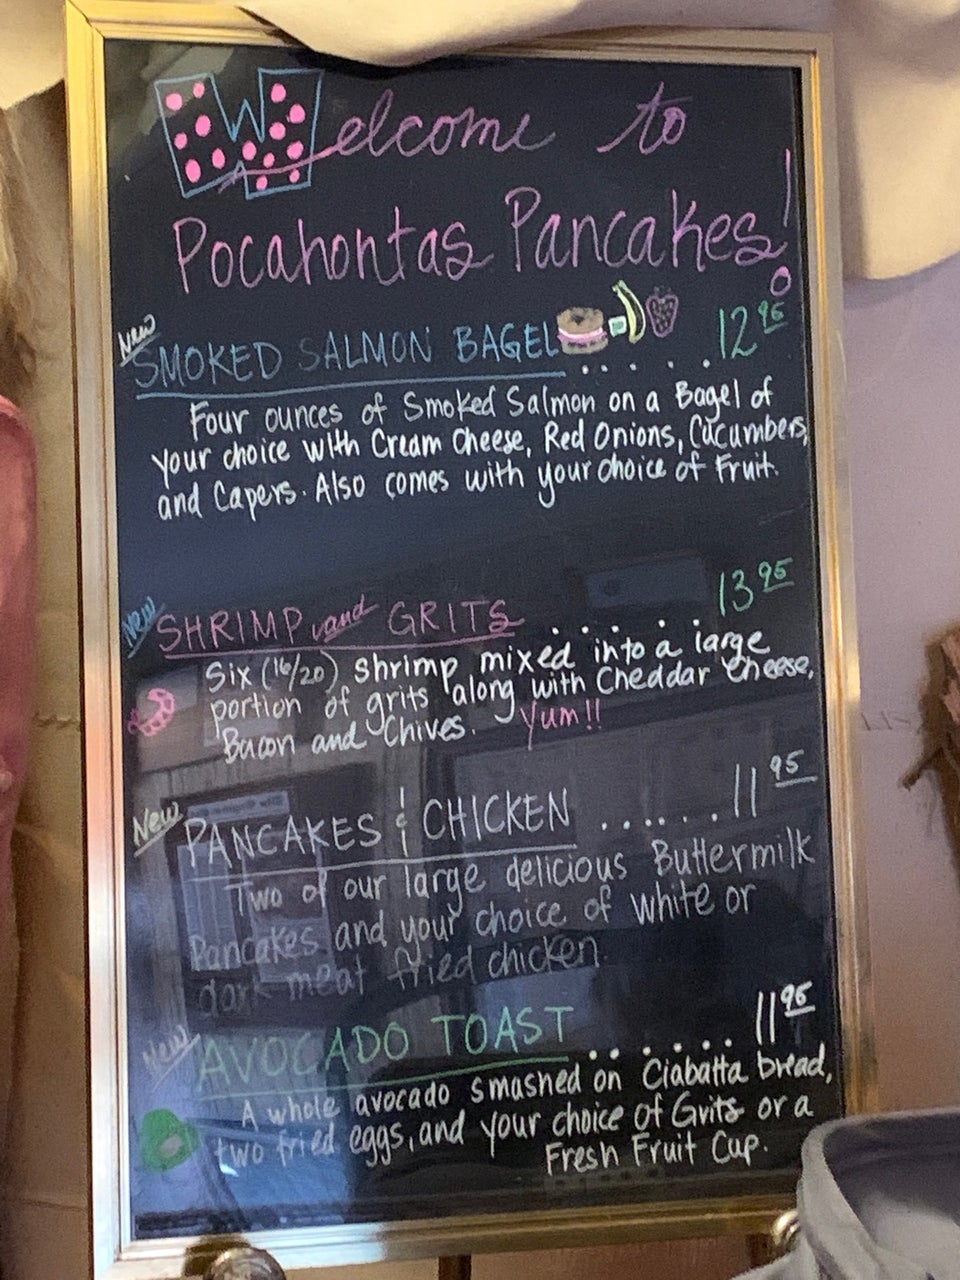 Welcome to
Pocahontas Pancakes!
New
SMOKED SALMON BAGEL ..... 12 95
Four ounces of Smoked Salmon on a Bagel of
your choice with Cream Cheese, Red Onions, Cucumbers,
and Capers. Also comes with your choice of Fruit.
New
SHRIMP and GRITS ..... 13 95
Six (16/20) shrimp mixed into a large
portion of grits along with Cheddar Cheese,
Bacon and Chives. Yum!!
New
PANCAKES & CHICKEN ...... 11 95
Two of our large delicious Buttermilk
Pancakes and your choice of white or
dark meat fried chicken.
New
AVOCADO TOAST ...... 11 95
A whole avocado smashed on Ciabatta bread,
two fried eggs, and your choice of Grits or a
Fresh Fruit Cup.